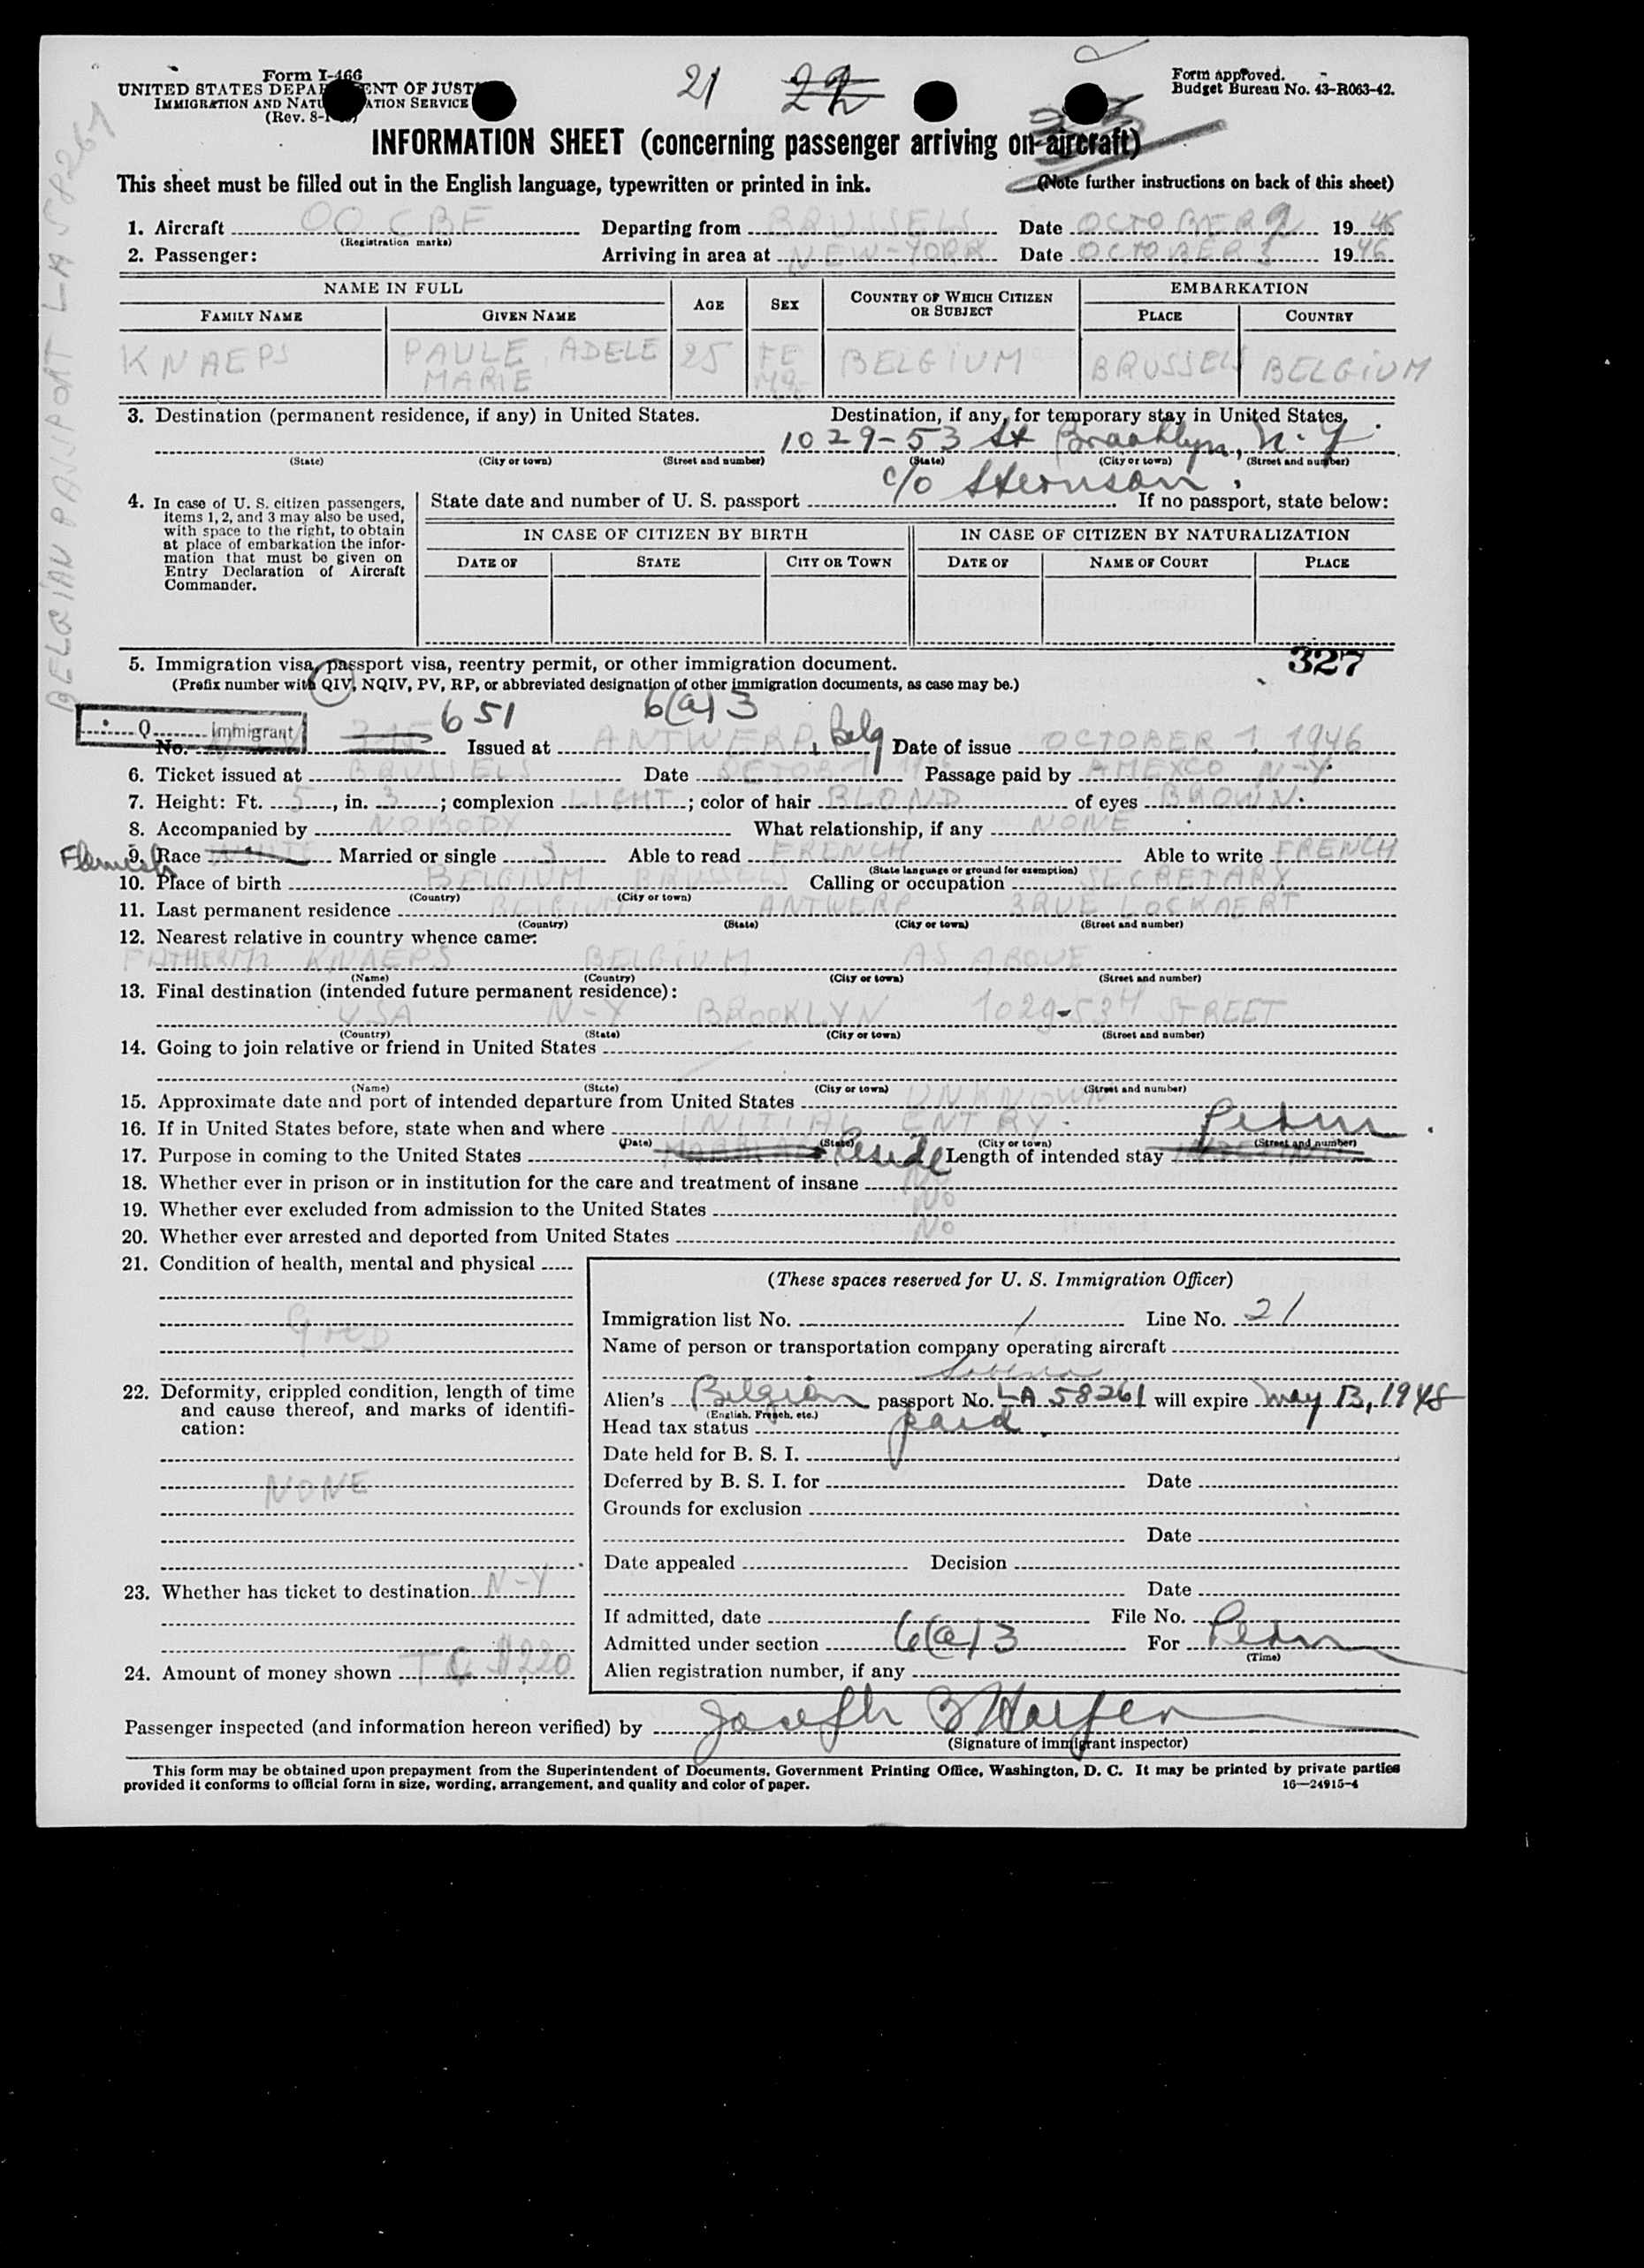 Form I-466
UNITED STATES DEPARTMENT OF JUSTICE
IMMIGRATION AND NATURALIZATION SERVICE
(Rev. 8-1
21 22
Form approved.
Budget Bureau No. 43-R063-42.
INFORMATION SHEET (concerning passenger arriving on aircraft)
This sheet must be filled out in the English language, typewritten or printed in ink. (Note further instructions on back of this sheet)
BELGIAN PASSPORT LA 58261
1. Aircraft OO CBF Departing from BRUSSELS Date OCTOBER 2 1946
(Registration marks)
2. Passenger: Arriving in area at NEW-YORK Date OCTOBER 3 1946
NAME IN FULL AGE SEX COUNTRY OF WHICH CITIZEN OR SUBJECT EMBARKATION
FAMILY NAME GIVEN NAME PLACE COUNTRY
KNAEPS PAULE, ADELE 25 FE BELGIUM BRUSSELS BELGIUM
MARIE
3. Destination (permanent residence, if any) in United States. Destination, if any, for temporary stay in United States.
1029-53 St Brooklyn, N.Y.
(State) (City or town) (Street and number) (State) (City or town) (Street and number)
c/o Sternson.
4. In case of U. S. citizen passengers, items 1, 2, and 3 may also be used, with space to the right, to obtain at place of embarkation the information that must be given on Entry Declaration of Aircraft Commander.
State date and number of U. S. passport If no passport, state below:
IN CASE OF CITIZEN BY BIRTH IN CASE OF CITIZEN BY NATURALIZATION
DATE OF STATE CITY OR TOWN DATE OF NAME OF COURT PLACE
5. Immigration visa, passport visa, reentry permit, or other immigration document. 327
(Prefix number with QIV, NQIV, PV, RP, or abbreviated designation of other immigration documents, as case may be.)
651 6(a)3
Q Immigrant
No. Issued at ANTWERP, Belg Date of issue OCTOBER 1, 1946
6. Ticket issued at BRUSSELS Date OCTOB 1 1946 Passage paid by AMEXCO N-Y
7. Height: Ft. 5, in. 3; complexion LIGHT; color of hair BLOND of eyes BROWN
8. Accompanied by NOBODY What relationship, if any NONE
Flemish
9. Race WHITE Married or single S Able to read FRENCH Able to write FRENCH
(State language or ground for exemption)
10. Place of birth BELGIUM BRUSSELS Calling or occupation SECRETARY
(Country) (City or town)
11. Last permanent residence BELGIUM ANTWERP 3 RUE LOCKAERT
(Country) (State) (City or town) (Street and number)
12. Nearest relative in country whence came:
FATHER Mr KNAEPS BELGIUM AS ABOVE
(Name) (Country) (City or town) (Street and number)
13. Final destination (intended future permanent residence):
USA N-Y BROOKLYN 1029-53H STREET
(Country) (State) (City or town) (Street and number)
14. Going to join relative or friend in United States
(Name) (State) (City or town) (Street and number)
15. Approximate date and port of intended departure from United States UNKNOWN
16. If in United States before, state when and where INITIAL ENTRY
(Date) (State) (City or town) (Street and number)
Perm
17. Purpose in coming to the United States MARRIAGE Reside Length of intended stay
18. Whether ever in prison or in institution for the care and treatment of insane NO
19. Whether ever excluded from admission to the United States NO
20. Whether ever arrested and deported from United States NO
21. Condition of health, mental and physical
GOOD
22. Deformity, crippled condition, length of time and cause thereof, and marks of identification:
NONE
23. Whether has ticket to destination N-Y
24. Amount of money shown TC $220
(These spaces reserved for U. S. Immigration Officer)
Immigration list No. 1 Line No. 21
Name of person or transportation company operating aircraft
Sabena
Alien's Belgian passport No. LA 58261 will expire May 13, 1948
(English, French, etc.)
Head tax status paid.
Date held for B. S. I.
Deferred by B. S. I. for Date
Grounds for exclusion
Date
Date appealed Decision
Date
If admitted, date File No.
Admitted under section 6(a)3 For Perm
(Time)
Alien registration number, if any
Passenger inspected (and information hereon verified) by Joseph B Halfen
(Signature of immigrant inspector)
This form may be obtained upon prepayment from the Superintendent of Documents, Government Printing Office, Washington, D. C. It may be printed by private parties
provided it conforms to official form in size, wording, arrangement, and quality and color of paper. 16—24915-4